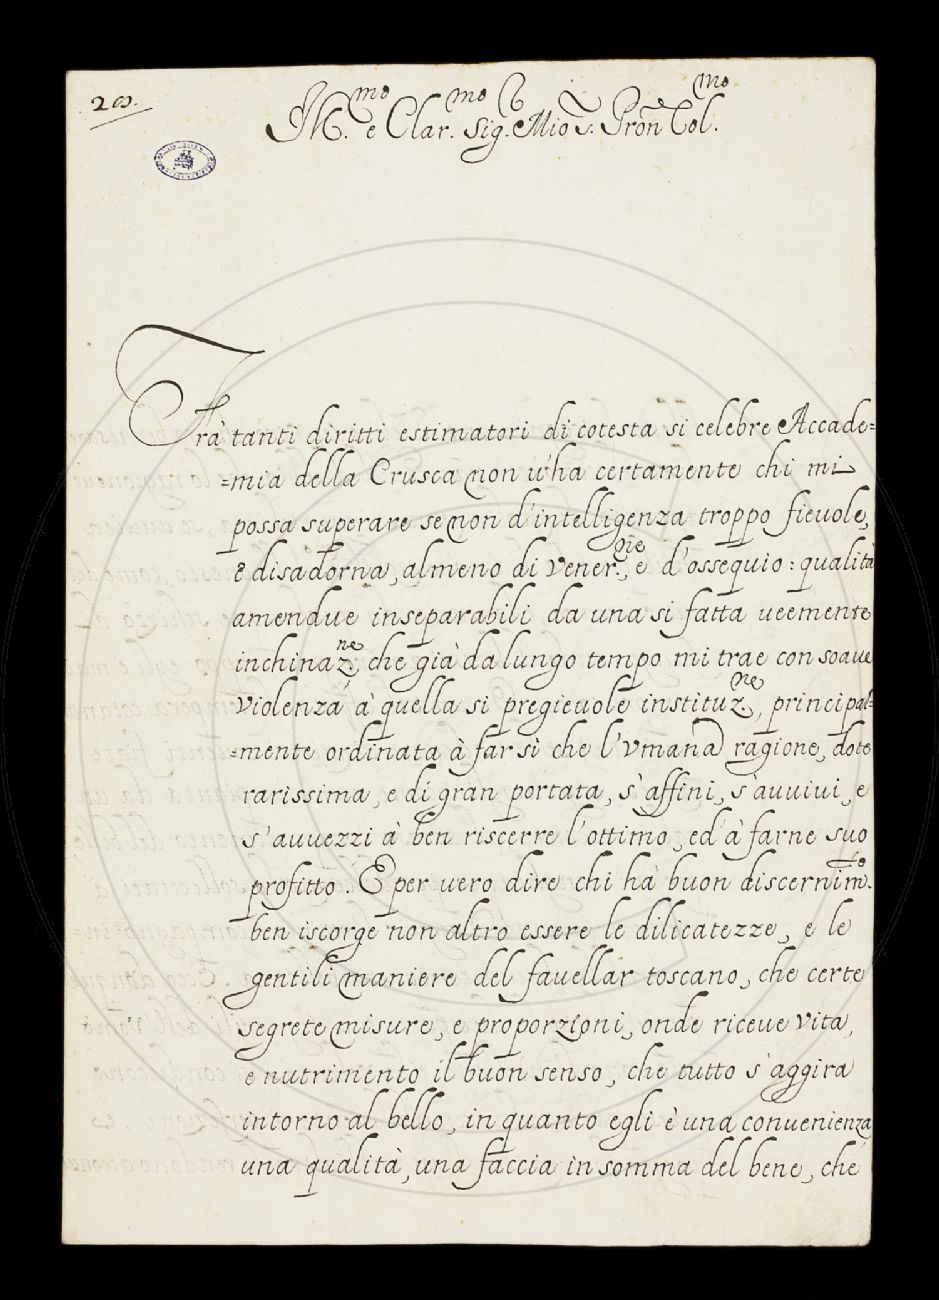 203.
Ill.mo e Clar.mo Sig. Mio S. Pron Col.mo
Frà tanti diritti estimatori di cotesta si celebre Accade=
=mia della Crusca non u'ha certamente chi mi
possa superare se non d'intelligenza troppo fieuole,
e disadorna, almeno di vener.ne, e d'ossequio: qualità
amendue inseparabili da una si fatta ueemente
inchinaz.ne, che già da lungo tempo mi trae con soaue
violenza à quella si pregieuole instituz.ne, principal=
=mente ordinata à far sì che l'vmana ragione, dote
rarissima, e di gran portata, s'affini, s'auuiui, e
s'auuezzi à ben riscerre l'ottimo, ed à farne suo
profitto. E per uero dire chi hà buon discernim.to
ben iscorge non altro essere le dilicatezze, e le
gentili maniere del fauellar toscano, che certe
segrete misure, e proporzioni, onde riceue vita,
e nutrimento il buon senso, che tutto s'aggira
intorno al bello, in quanto egli è una conuenienza
una qualità, una faccia in somma del bene, che